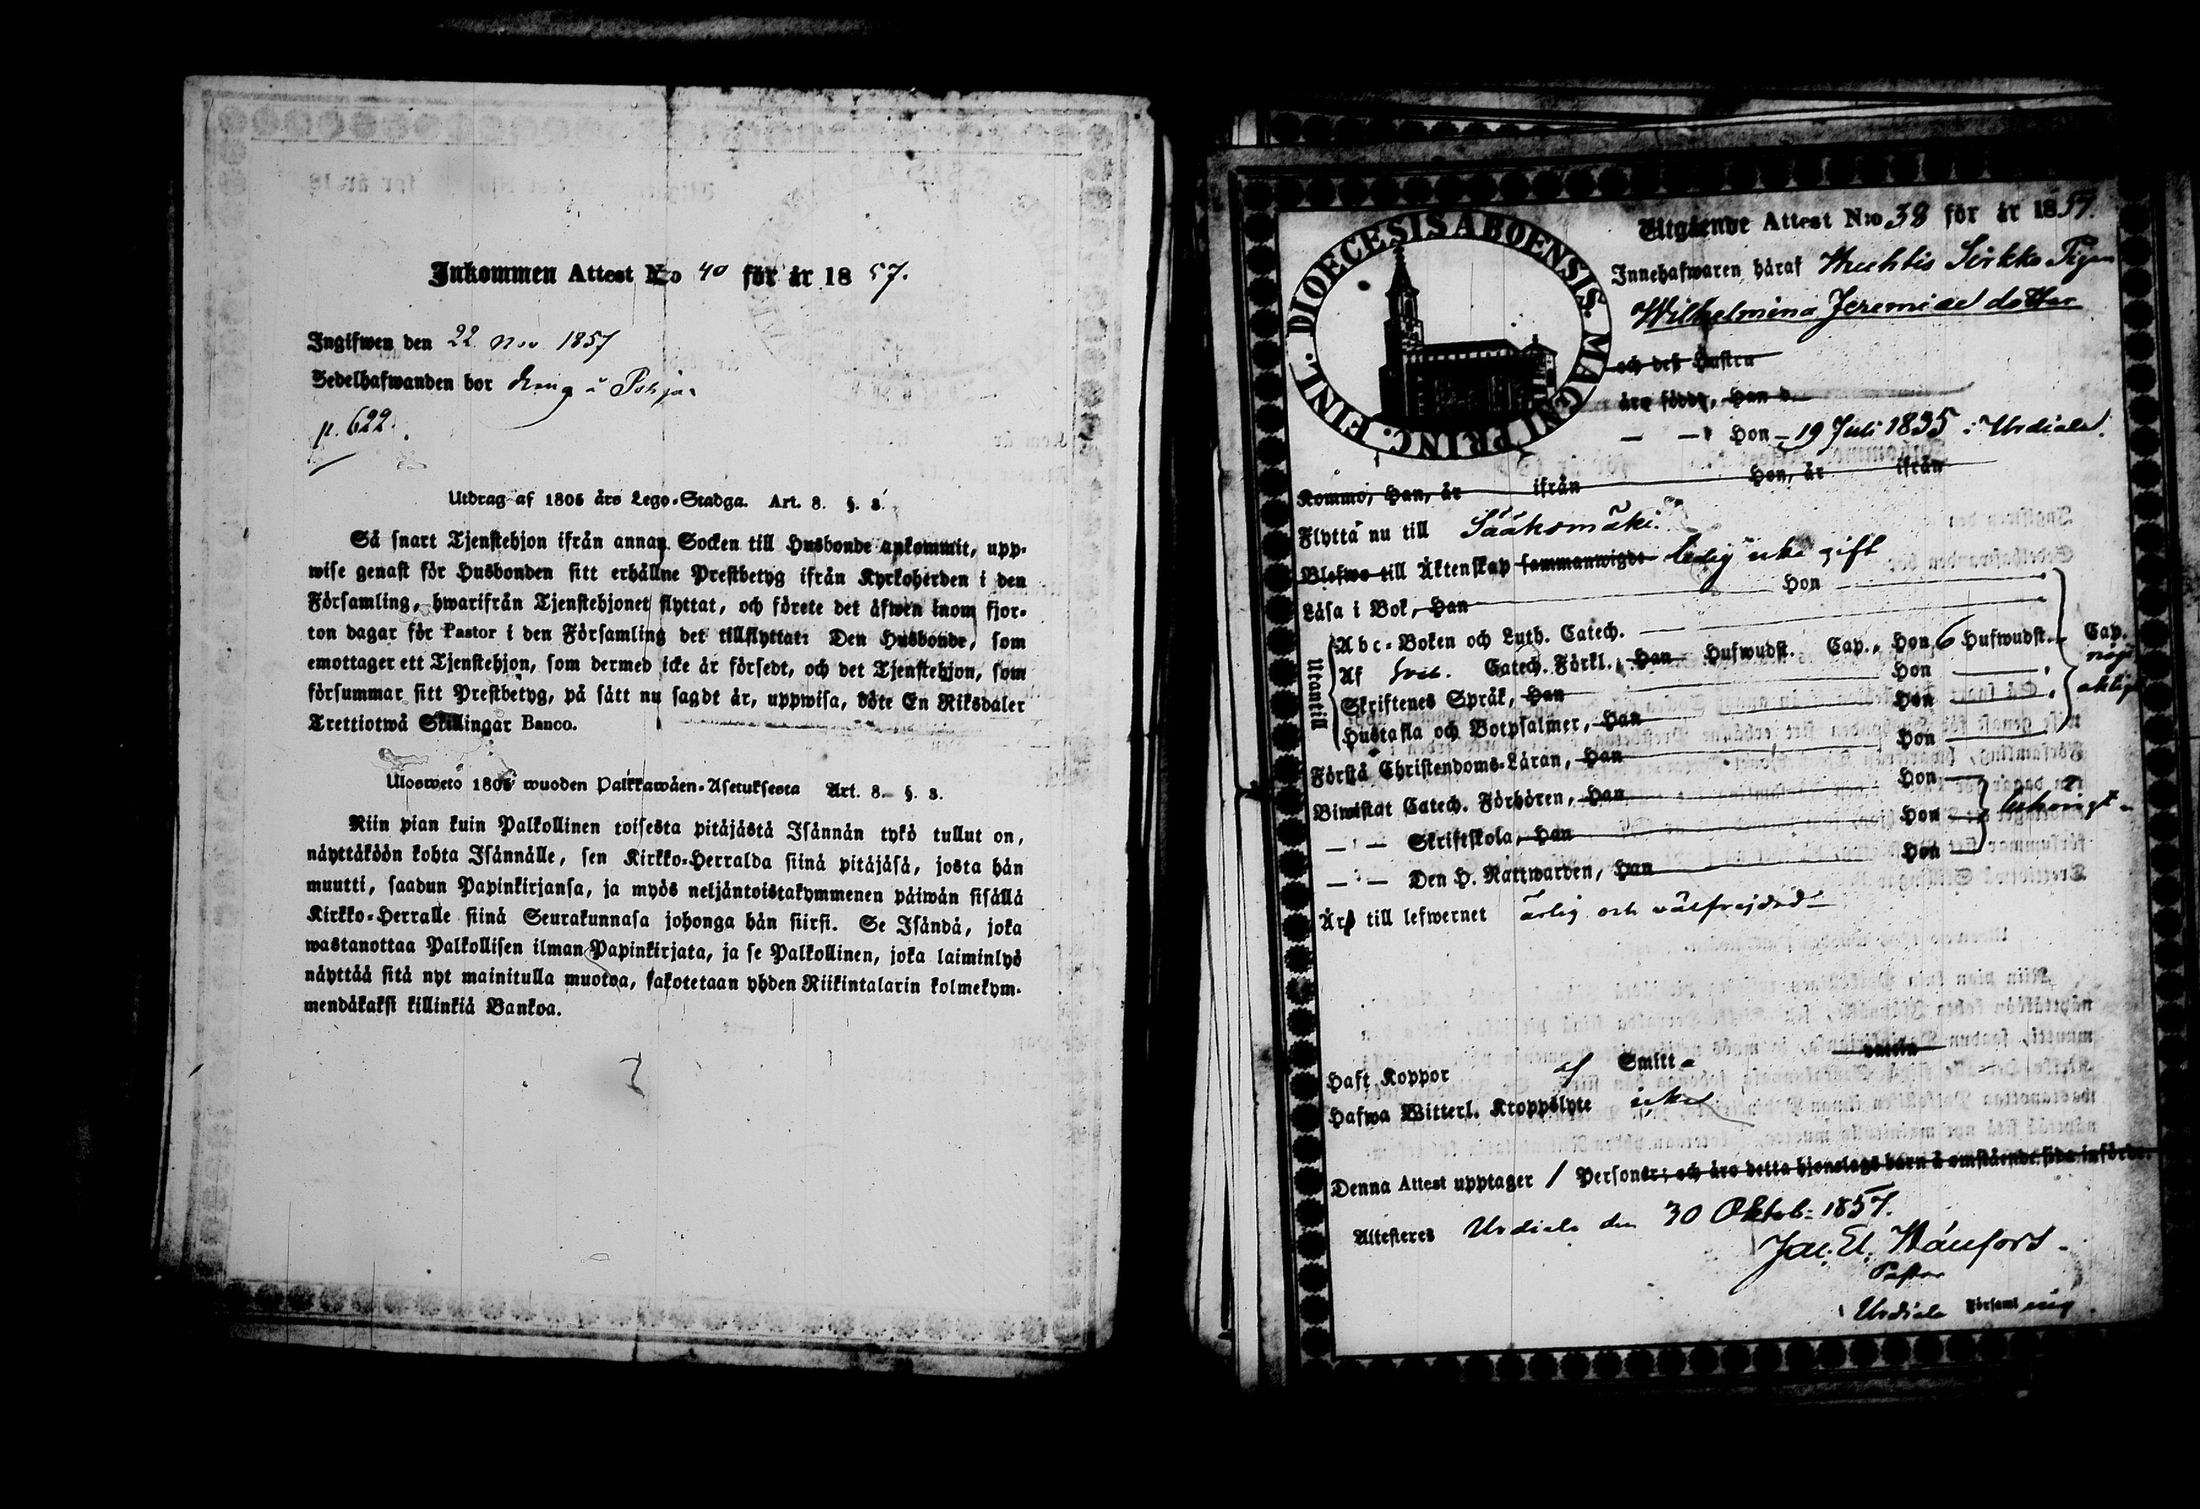 Inkommen Attest No 40 för år 1857.
Ingifwen den 22 Nov 1857
Sedelhafwanden bor dreng i Pohja
p. 622.
Utdrag af 1805 års Lego-Stadga. Art. 8. §. 3.
Så snart Tjenstehjon ifrån annan Socken till Husbonde ankommit, upp-
wise genast för Husbonden sitt erhållne Prestbetyg ifrån Kyrkoherden i den
Församling, hwarifrån Tjenstehjonet flyttat, och förete det äfwen inom fjor-
ton dagar för Pastor i den Församling det tillflyttat: Den Husbonde, som
emottager ett Tjenstehjon, som dermed icke är försedt, och det Tjenstehjon, som
försummar sitt Prestbetyg, på sätt nu sagdt är, uppwisa, böte En Riksdaler
Trettiotwå Skillingar Banco.
Ulosweto 1805 wuoden Palkkawäen-Asetuksesta Art. 8. §. 3.
Niin pian kuin Palkollinen toisesta pitäjästä Isännän tykö tullut on,
näyttäköön kohta Isännälle, sen Kirkko-Herralda siinä pitäjäsä, josta hän
muutti, saadun Papinkirjansa, ja myös neljäntoistakymmenen päiwän sisällä
Kirkko-Herralle siinä Seurakunnasa johonga hän siirsi. Se Isändä, joka
wastanottaa Palkollisen ilman Papinkirjata, ja se Palkollinen, joka laiminlyö
näyttää sitä nyt mainitulla muotoa, sakotetaan yhden Riikintalarin kolmekym-
mendäkaksi killinkiä Bankoa.
DIOECESIS ABOENSIS. MAGNI PRINC. FINL.
Utgående Attest N:o 38 för år 1857.
Innehafwaren häraf Sirkko Pigan
Wilhelmina Jeremiae dotter
och deß Hustru
äro födde, Han d.
— — Hon 19 Juli 1835 i Urdiala.
Kommo, Han, år ifrån Hon, år ifrån
Flytta nu till Sääksmäki.
Blefwo till Äktenskap sammanwigde ledig icke gift
Läsa i Bok, Han Hon
Utantill
Abc-Boken och Luth. Catech.
Af Sveb. Catech. Förkl., Han Hufwudst. Cap., Hon 6 Hufwudst. Cap.
Skriftenes Språk, Han Hon
Hustafla och Botpsalmer, Han Hon
nöjaktigt
Förstå Christendoms-Läran, Han Hon
Biwistat Catech. Förhören, Han Hon
— — Skriftskola, Han Hon
— — Den H. Nattwarden, Han Hon
behörigt
Äro till lefwernet ärlig och välfrejdad
Haft Koppor af Smitta
Hafwa Witterl. Kroppslyte icke
Denna Attest upptager 1 Personer; och äro detta hjonelags barn å omstående sida införde.
Attesteres Urdiala den 30 Oktob: 1857.
Pastor
i Urdiala Församling